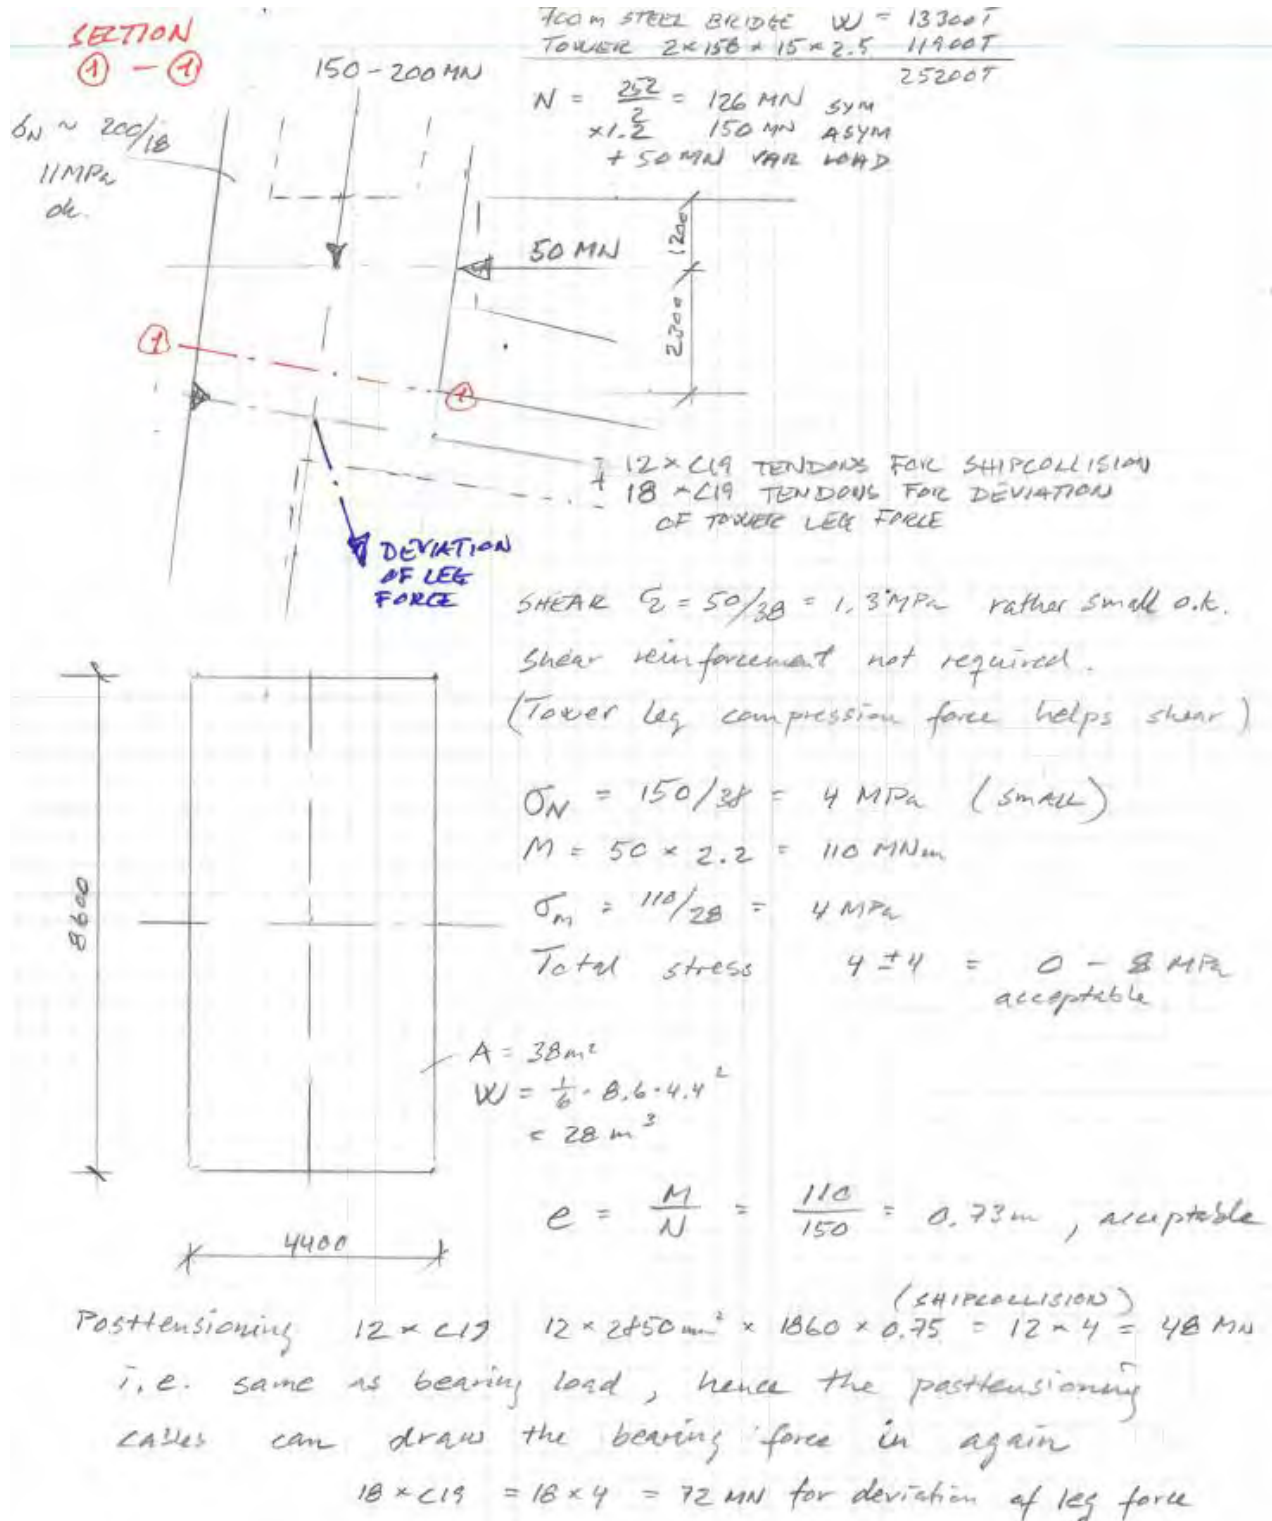 SECTION
① - ①
700 m STEEL BRIDGE W = 13300T
TOWER 2×156×15×2.5 11900T
25200T
150-200 MN
N = 252/2 = 126 MN SYM
×1.2 150 MN ASYM
+ 50 MN VAR LOAD
σN ~ 200/18
11MPa
ok.
50 MN
1200
2300
①
①
12×C19 TENDONS FOR SHIPCOLLISION
+ 18×C19 TENDONS FOR DEVIATION
OF TOWER LEG FORCE
DEVIATION
OF LEG
FORCE
SHEAR = 50/38 = 1.3 MPa rather small o.k.
Shear reinforcement not required.
(Tower leg compression force helps shear)
σN = 150/38 = 4 MPa (SMALL)
M = 50 × 2.2 = 110 MNm
σm = 110/28 = 4 MPa
Total stress 4 ± 4 = 0 - 8 MPa
acceptable
8600
A = 38m²
W = 1/6 · 8.6 · 4.4²
= 28 m³
4400
e = M/N = 110/150 = 0.73m , acceptable
(SHIPCOLLISION)
Posttensioning 12 × C19 12 × 2850 mm² × 1860 × 0.75 = 12 × 4 = 48 MN
i.e. same as bearing load, hence the posttensioning
cables can draw the bearing force in again
18 × C19 = 18 × 4 = 72 MN for deviation of leg force